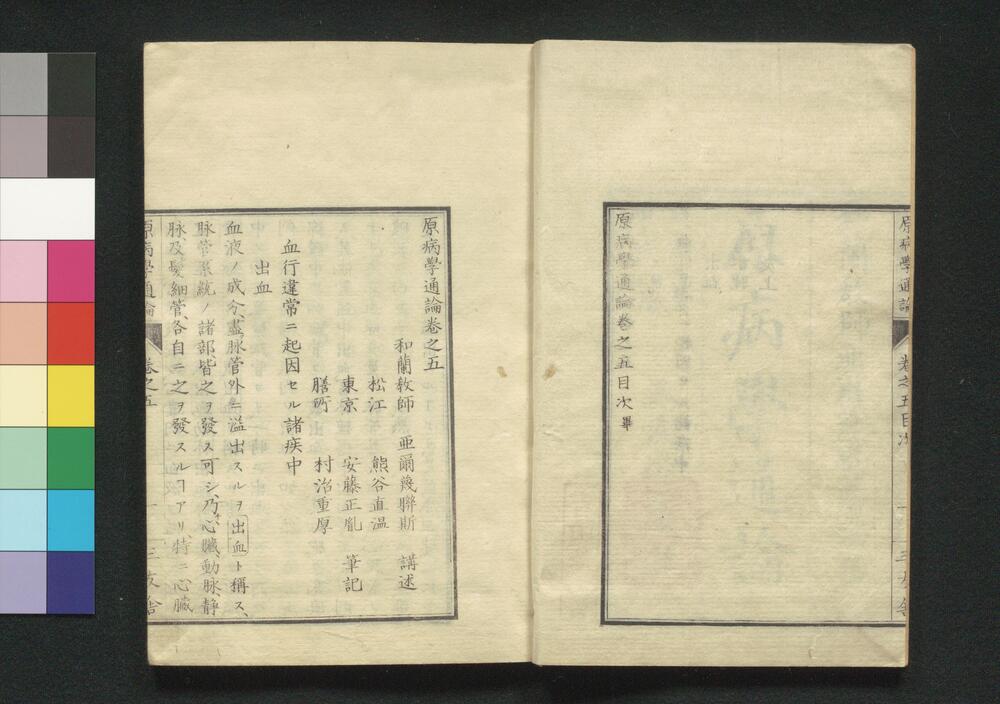 原病學通論卷之五目次
原病學通論卷之五目次畢
原病學通論卷之五
和蘭敎師 亜爾蔑聯斯 講述
松江 熊谷直温
東京 安藤正胤 筆記
膳所 村治重厚
血行違常ニ起因セル諸疾中
出血
血液ノ成分、盡ク脉管外ニ溢出スルヲ出血ト稱ス、
脉管系統ノ諸部皆之ヲ發ス可シ、乃チ心臓、動脉、静
脉、及髪細管、各自ニ之ヲ發スルヿアリ、特ニ心臓
原病學通論 卷之五 一